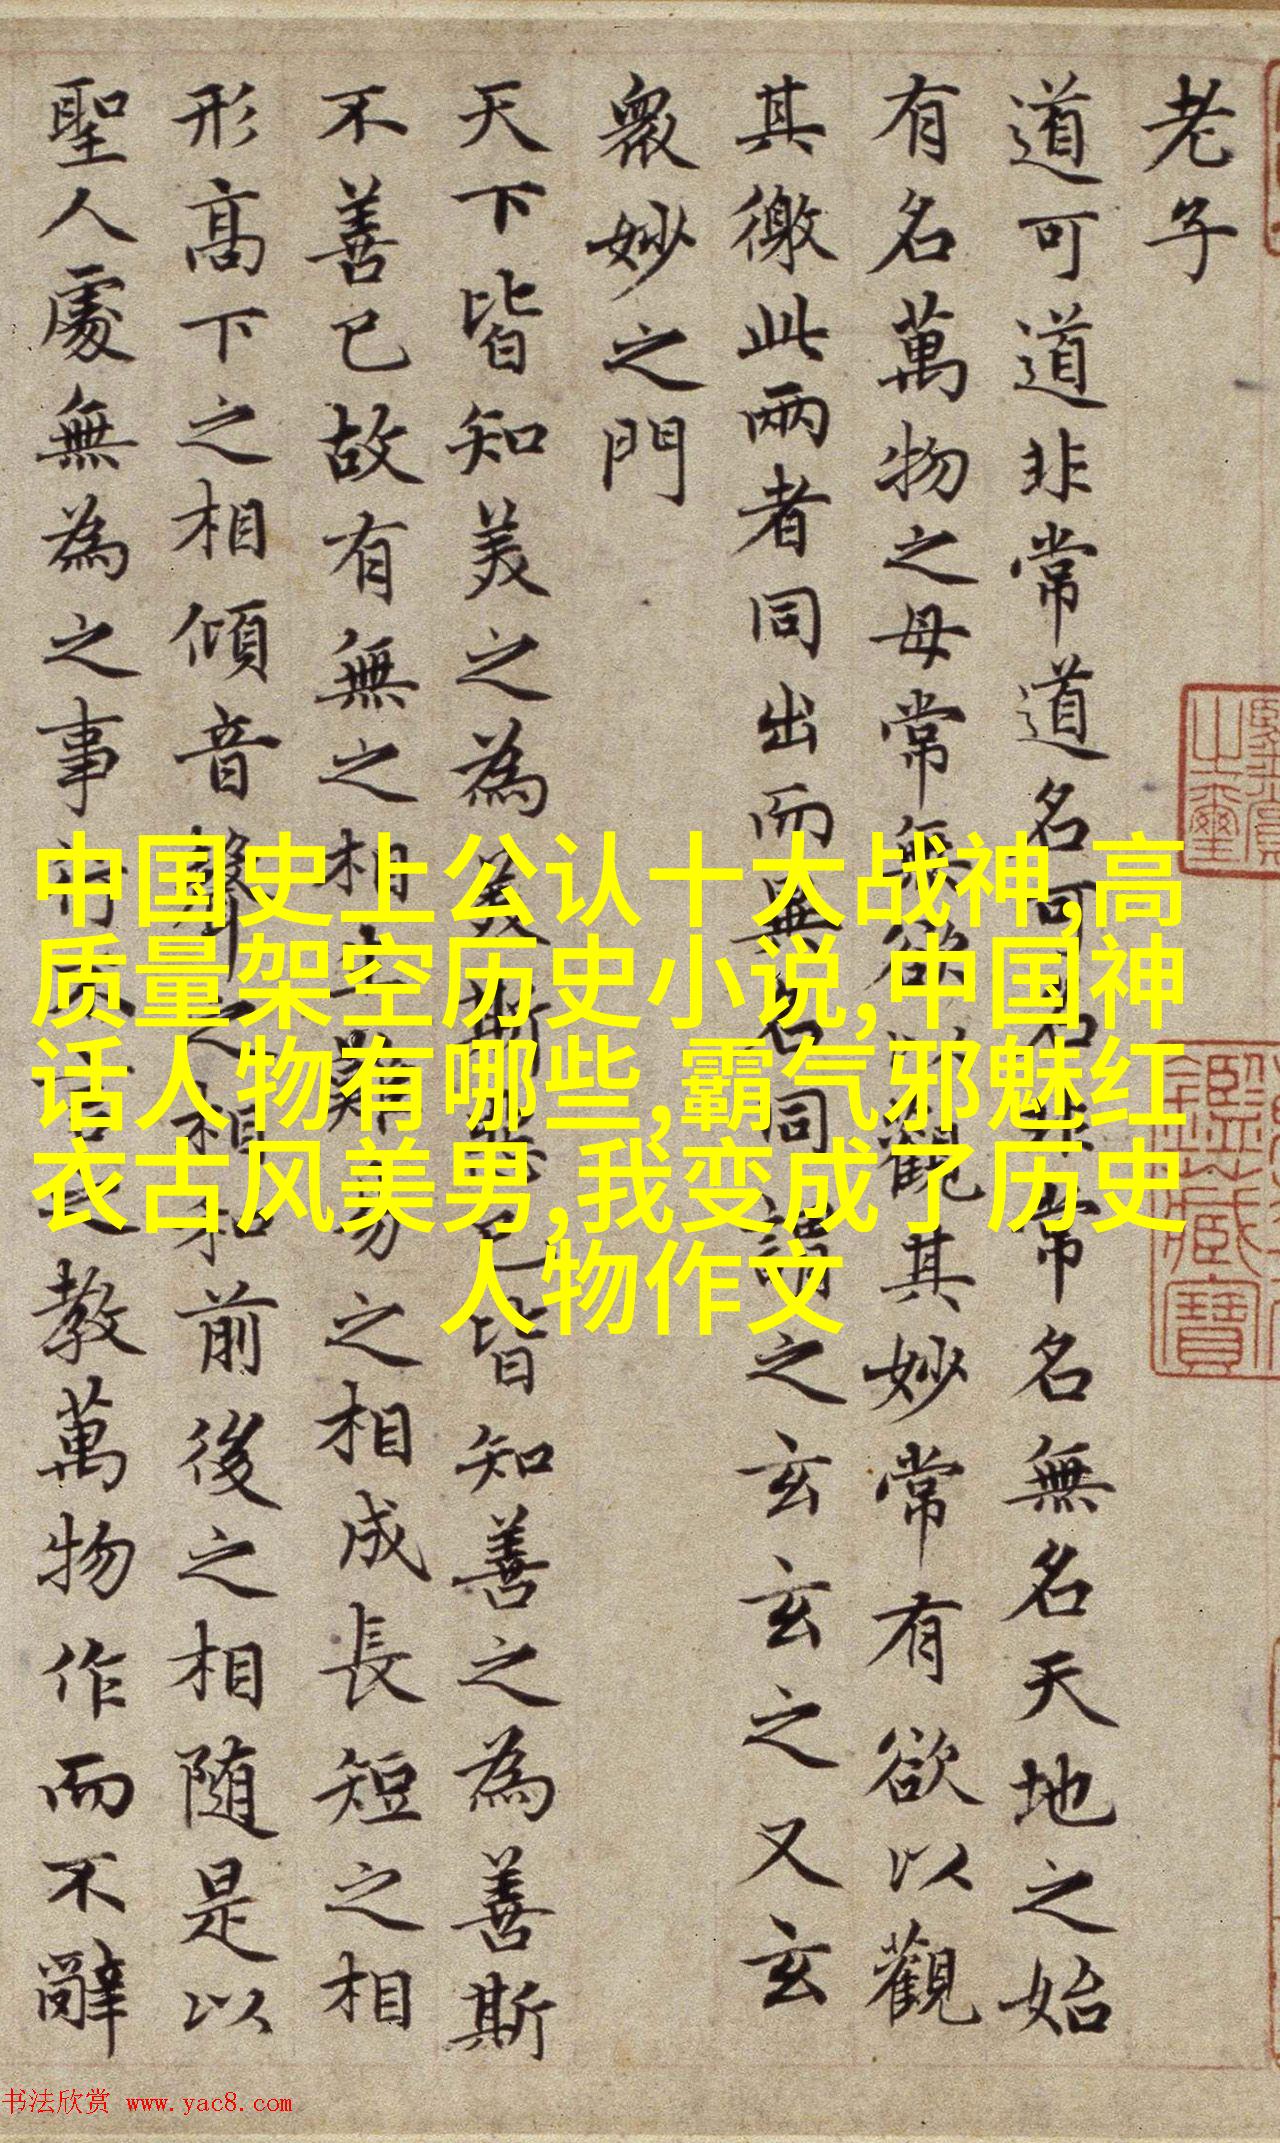 老子
道可道非常道名可名非常名無名天地之始
有名萬物之母常無欲以觀其妙常有欲以觀
其徼此兩者同出而異名同謂之玄玄之又玄
衆妙之門
天下皆知美之為美斯惡已皆知善之為善斯
不善已故有無之相生難易之相成長短之相
形髙下之相傾音聲之相和前後之相随是以
聖人處無為之事行不言之教萬物作而不辭
中国史上公认十大战神,高
质量架空历史小说,中国神
话人物有哪些,霸气邪魅红
衣古风美男,我变成了历史
人物作文
书法欣赏 www.yac8.com